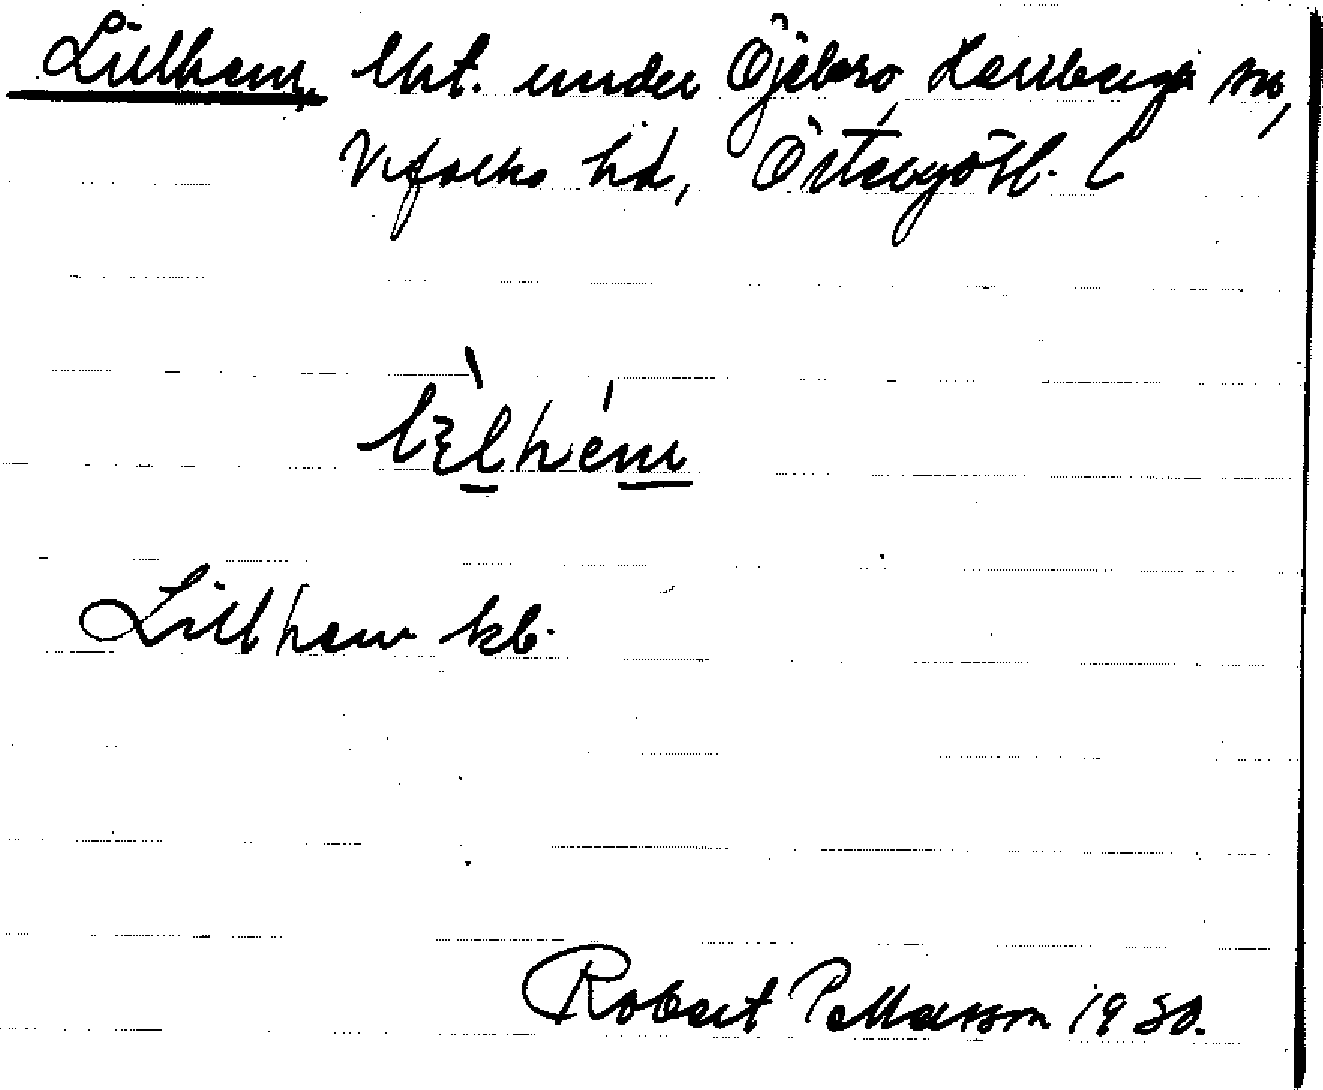 Lillhem, lht. under Öjebro, Herrberga sn,
Vifolka hd, Östergötl. L
lìlhém
Lillhem kb.
Robert Pettersson 1930.